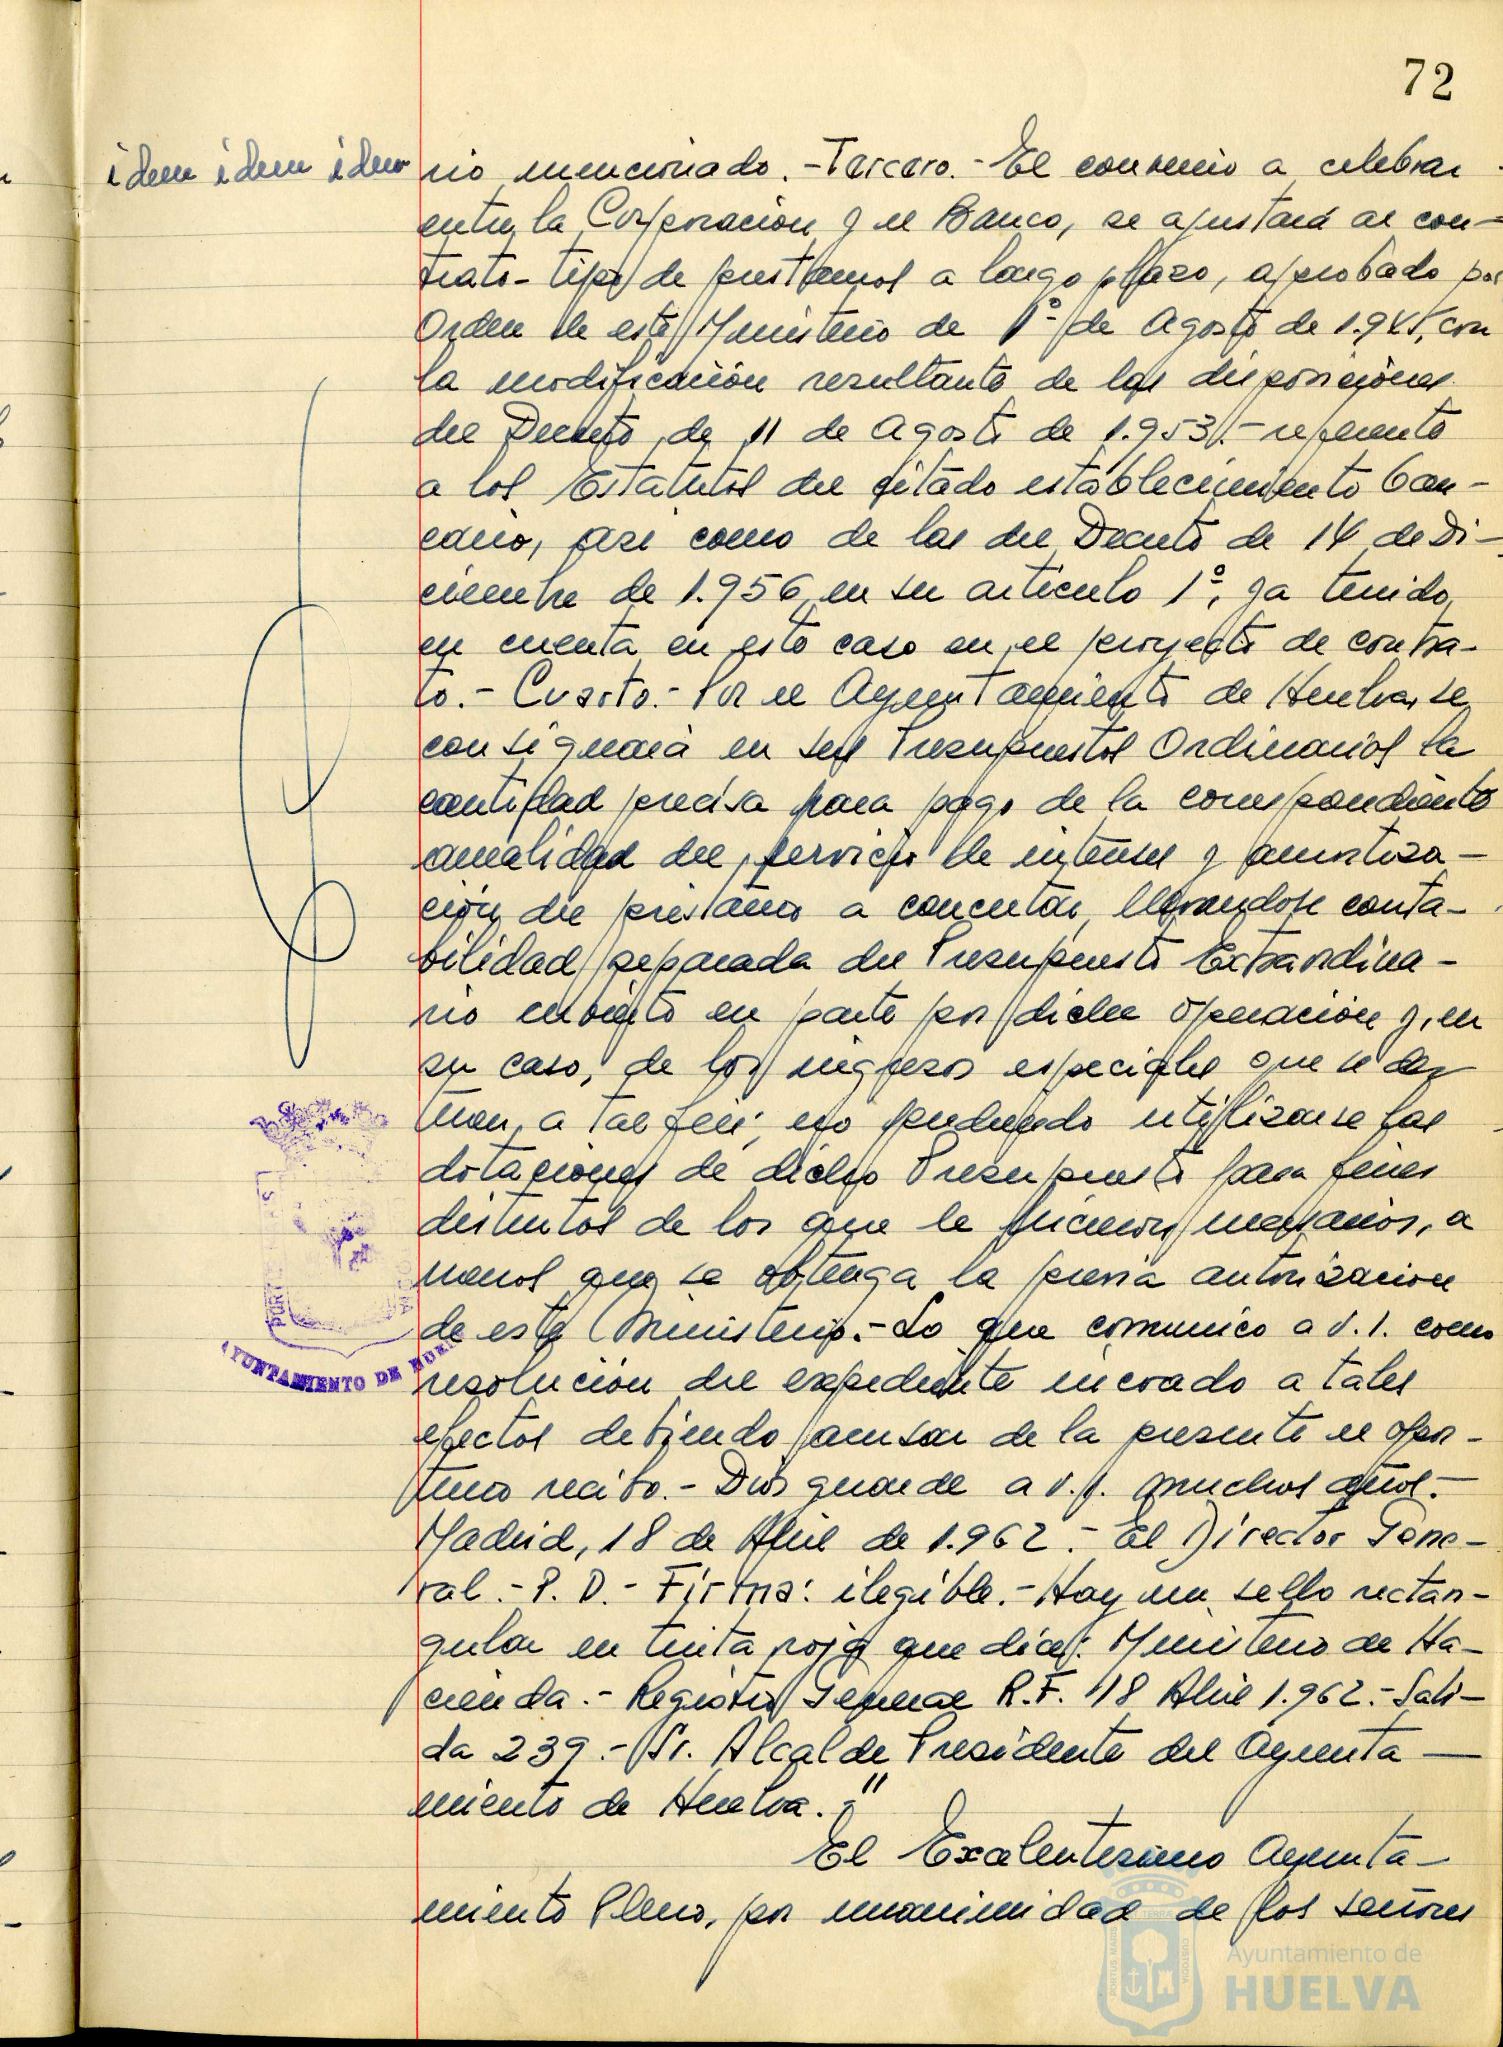 72
idem idem idem
rio mencionado.-Tercero.-El convenio a celebrar
entre la Corporación y el Banco, se ajustará al con-
trato-tipo de prestamos a largo plazo, aprobado por
Orden de este Ministerio de 1º de Agosto de 1.945, con
la modificación resultante de las disposiciones
del Decreto de 11 de Agosto de 1.953.-referente
a los Estatutos del citado establecimiento ban-
cario, asi como de las del Decreto de 14 de Di-
ciembre de 1.956 en su articulo 1º, ya tenido
en cuenta en este caso en el proyecto de contra-
to.- Cuarto.- Por el Ayuntamiento de Huelva, se
consignará en sus Presupuestos Ordinarios la
cantidad precisa para pago de la correspondiente
anualidad del servicio de interes y amortiza-
ción del préstamo a concertar, llevandose conta-
bilidad separada del Presupuesto Extraordina-
rio cubierto en parte por dicha operación y, en
su caso, de los ingresos especiales que se des-
tinen a tal fin; no pudiendo utilizarse las
dotaciones de dicho Presupuesto para fines
distintos de los que le fueron necesarios, a
menos que se obtenga la previa autorización
de este Ministerio.-Lo que comunico a V.I. como
resolución del expediente incoado a tales
efectos debiendo acusar de la presente el opor-
tuno recibo.- Dios guarde a V.I. muchos años.-
Madrid, 18 de Abril de 1.962.- El Director Gene-
ral.-P. D.- Firma: ilegible.-Hay un sello rectan-
gular en tinta roja que dice: Ministerio de Ha-
cienda.- Registro General R.F. 18 Abril 1.962.-Sali-
da 239.-Sr. Alcalde Presidente del Ayunta-
miento de Huelva.-"
El Excelentisimo Ayunta-
miento Pleno, por unanimidad de los señores
AYUNTAMIENTO DE HUELVA
Ayuntamiento de
HUELVA